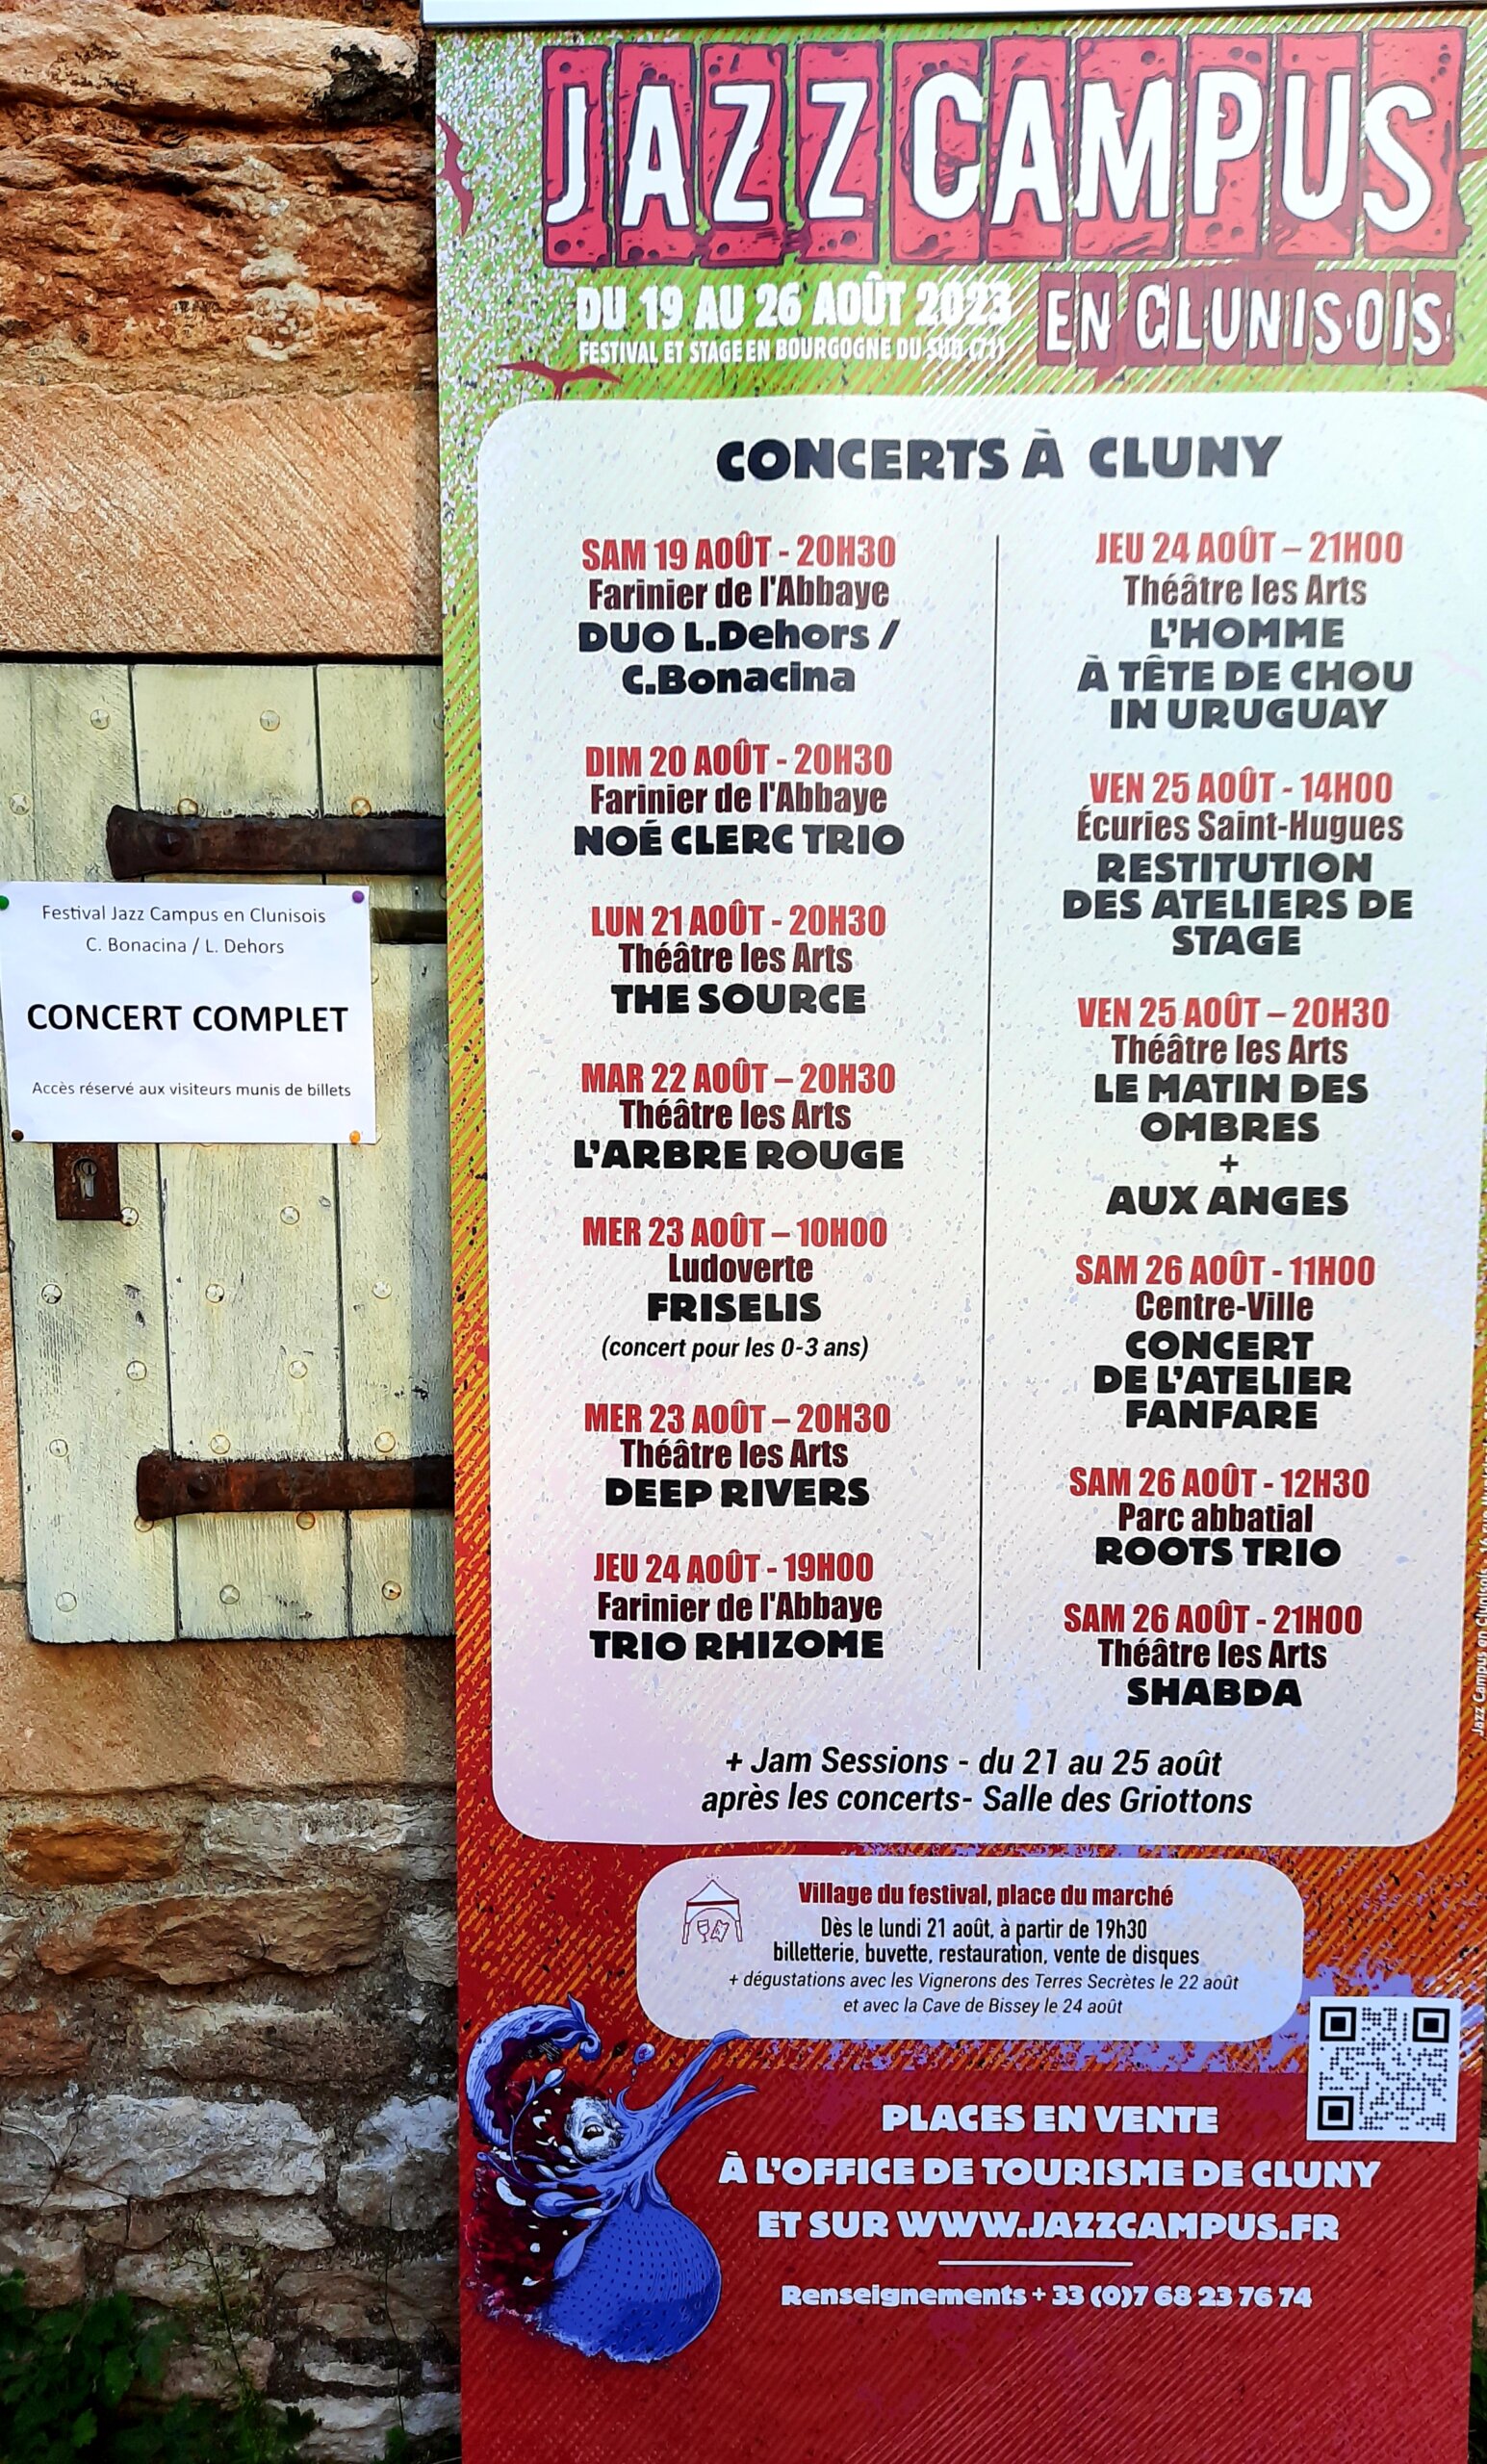 JAZZ CAMPUS
EN CLUNISOIS
DU 19 AU 26 AOÛT 2023
FESTIVAL ET STAGE EN BOURGOGNE DU SUD (71)
CONCERTS À CLUNY
SAM 19 AOÛT - 20H30
Farinier de l'Abbaye
DUO L.Dehors /
C.Bonacina
DIM 20 AOÛT - 20H30
Farinier de l'Abbaye
NOÉ CLERC TRIO
LUN 21 AOÛT - 20H30
Théâtre les Arts
THE SOURCE
MAR 22 AOÛT – 20H30
Théâtre les Arts
L'ARBRE ROUGE
MER 23 AOÛT – 10H00
Ludoverte
FRISELIS
(concert pour les 0-3 ans)
MER 23 AOÛT – 20H30
Théâtre les Arts
DEEP RIVERS
JEU 24 AOÛT - 19H00
Farinier de l'Abbaye
TRIO RHIZOME
JEU 24 AOÛT – 21H00
Théâtre les Arts
L'HOMME
À TÊTE DE CHOU
IN URUGUAY
VEN 25 AOÛT - 14H00
Écuries Saint-Hugues
RESTITUTION
DES ATELIERS DE
STAGE
VEN 25 AOÛT – 20H30
Théâtre les Arts
LE MATIN DES
OMBRES
+
AUX ANGES
SAM 26 AOÛT - 11H00
Centre-Ville
CONCERT
DE L'ATELIER
FANFARE
SAM 26 AOÛT - 12H30
Parc abbatial
ROOTS TRIO
SAM 26 AOÛT - 21H00
Théâtre les Arts
SHABDA
+ Jam Sessions - du 21 au 25 août
après les concerts- Salle des Griottons
Village du festival, place du marché
Dès le lundi 21 août, à partir de 19h30
billetterie, buvette, restauration, vente de disques
+ dégustations avec les Vignerons des Terres Secrètes le 22 août
et avec la Cave de Bissey le 24 août
PLACES EN VENTE
À L'OFFICE DE TOURISME DE CLUNY
ET SUR WWW.JAZZCAMPUS.FR
Renseignements + 33 (0)7 68 23 76 74
Jazz Campus en Clunisois
Festival Jazz Campus en Clunisois
C. Bonacina / L. Dehors
CONCERT COMPLET
Accès réservé aux visiteurs munis de billets